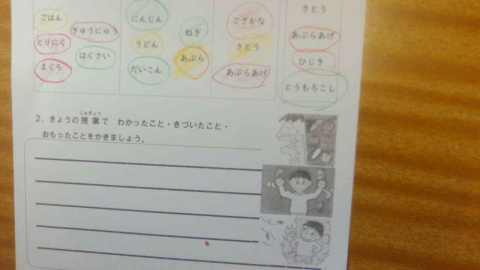 ごはん
ぎゅうにゅう
とりにく
はくさい
まぐろ
にんじん
ねぎ
うどん
あぶら
だいこん
こざかな
さとう
あぶらあげ
さとう
あぶらあげ
ひじき
とうもろこし
2．きょうの授業で わかったこと・きづいたこと・
おもったことをかきましょう。